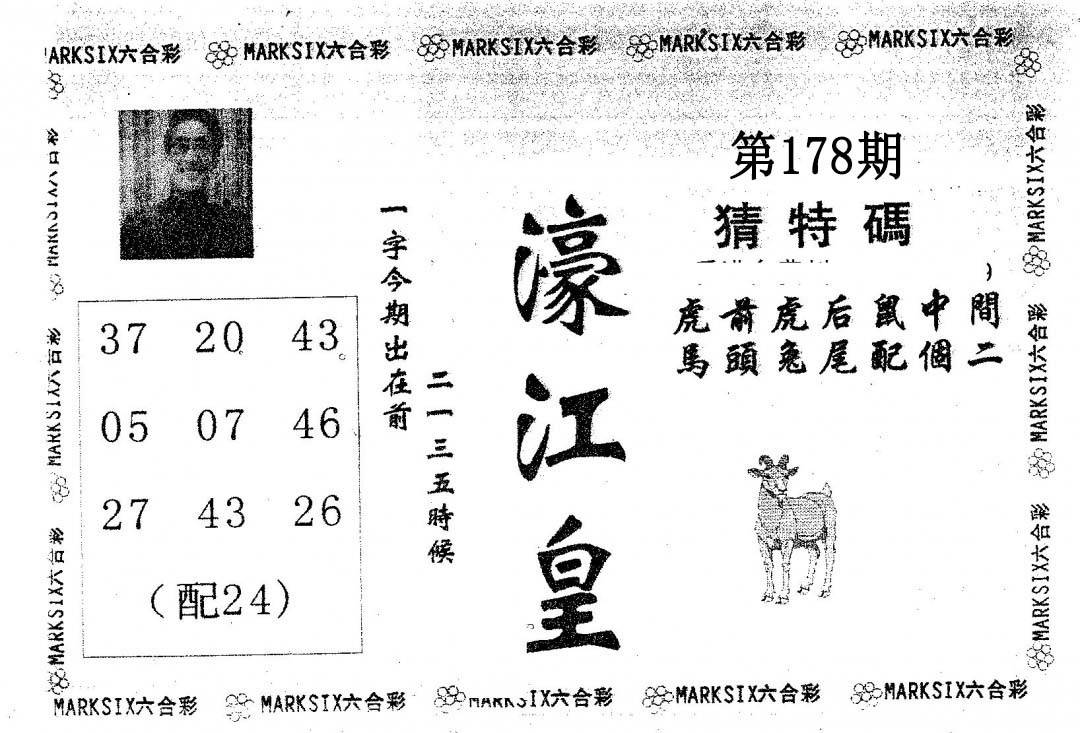 MARKSIX六合彩 MARKSIX六合彩 MARKSIX六合彩 MARKSIX六合彩
第178期
猜特碼
虎前虎后鼠中間
馬頭兔尾配個二
濠江皇
一字今期出在前
二一三五時候
37 20 43
05 07 46
27 43 26
(配24)
MARKSIX六合彩
MARKSIX六合彩
MARKSIX六合彩
MARKSIX六合彩
MARKSIX六合彩
MARKSIX六合彩 MARKSIX六合彩 MARKSIX六合彩 MARKSIX六合彩